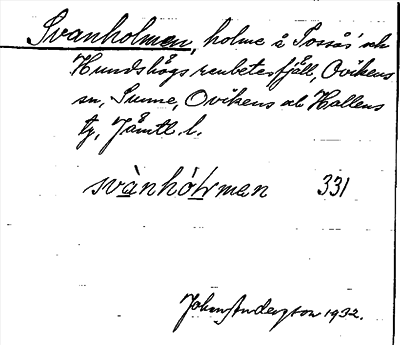 Svanholmen, holme å Tossås' och
Hundshögs renbetesfjäll, Ovikens
sn, Sunne, Ovikens och Hallens
tg, Jämtl. l.
svànhólmen 331
John Andersson 1932.